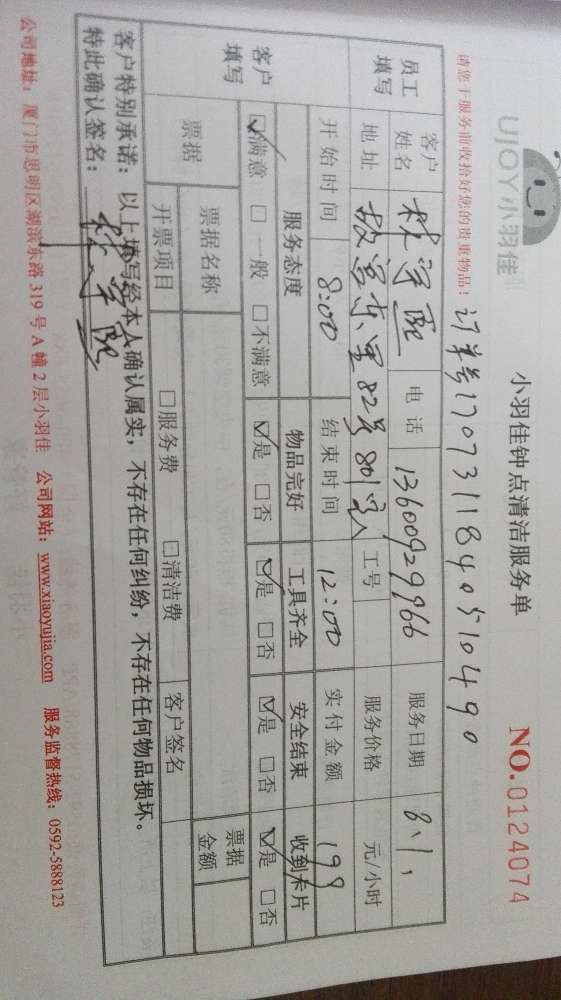 UJOY小羽佳
小羽佳钟点清洁服务单
NO.0124074
请您于服务前收拾好您的贵重物品！
订单号1707311840510490
员工填写
客户姓名 林宇熙 电话 13600929966 服务日期 8、1，
地址 故宫东里82号801室 工号 服务价格 元/小时
开始时间 8:00 结束时间 12:00 实付金额 199
客户填写
服务态度 物品完好 工具齐全 安全结束 收到卡片
☑满意 □一般 □不满意 ☑是 □否 ☑是 □否 ☑是 □否 ☑是 □否
票据 票据名称 票据金额
开票项目 □服务费 □清洁费 客户签名
客户特别承诺：以上填写经本人确认属实，不存在任何纠纷，不存在任何物品损坏。
特此确认签名：林宇熙
公司地址：厦门市思明区湖滨东路319号A幢2层小羽佳 公司网站：www.xiaoyujia.com 服务监督热线：0592-5888123